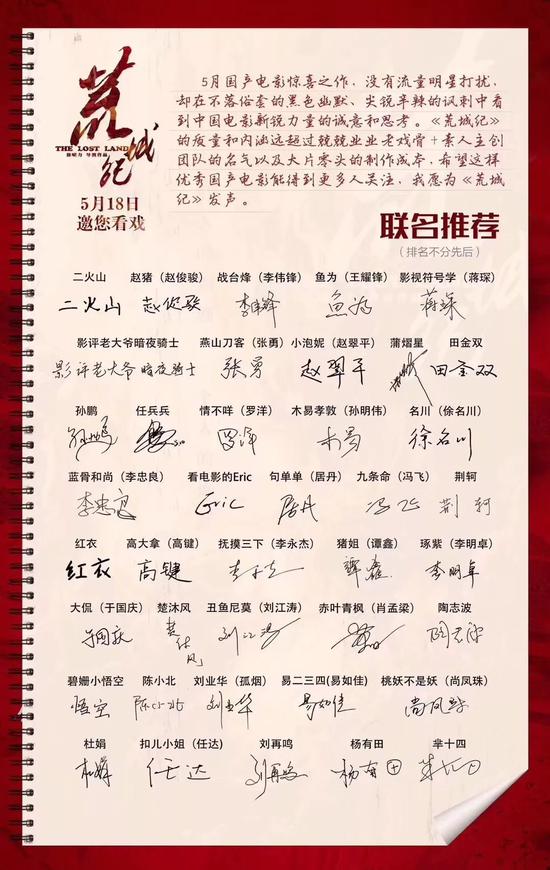 荒城纪
THE LOST LAND
徐啸力 导演作品
5月18日
邀您看戏
5月国产电影惊喜之作，没有流量明星打扰，
却在不落俗套的黑色幽默、尖锐辛辣的讽刺中看
到中国电影新锐力量的诚意和思考。《荒城纪》
的质量和内涵远超过兢兢业业老戏骨＋素人主创
团队的名气以及大片零头的制作成本，希望这样
优秀国产电影能得到更多人关注，我愿为《荒城
纪》发声。
联名推荐
（排名不分先后）
二火山 赵猪（赵俊骏） 战台烽（李伟锋） 鱼为（王耀锋） 影视符号学（蒋琛）
二火山 赵俊骏 李伟锋 鱼为 蒋琛
影评老大爷暗夜骑士 燕山刀客（张勇） 小泡妮（赵翠平） 蒲熠星 田金双
影评老大爷暗夜骑士 张勇 赵翠平 田金双
孙鹏 任兵兵 情不咩（罗洋） 木易孝敦（孙明伟） 名川（徐名川）
孙鹏 罗洋 木易 徐名川
蓝骨和尚（李忠良） 看电影的Eric 句单单（居丹） 九条命（冯飞） 荆轲
李忠良 Eric 居丹 冯飞 荆轲
红衣 高大拿（高键） 抚摸三下（李永杰） 猪姐（谭鑫） 琢紫（李明卓）
红衣 高键 谭鑫 李明卓
大侃（于国庆） 楚沐风 丑鱼尼莫（刘江涛） 赤叶青枫（肖孟梁） 陶志波
于国庆 楚沐风 刘江涛 陶志波
碧姗小悟空 陈小北 刘业华（孤烟） 易二三四(易如佳) 桃妖不是妖（尚凤珠）
悟空 陈小北 刘业华 易如佳 尚凤珠
杜娟 扣儿小姐（任达） 刘再鸣 杨有田 芈十四
杜娟 任达 刘再鸣 杨有田 芈十四